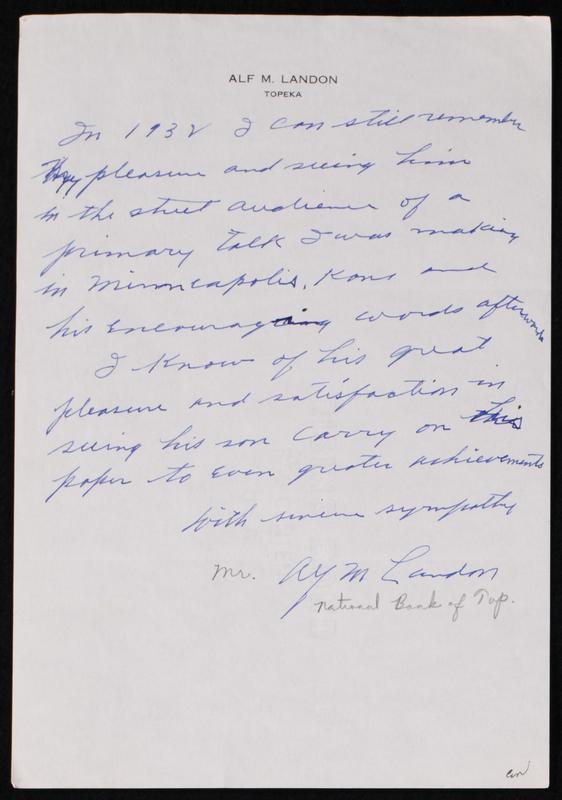 ALF M. LANDON
TOPEKA
In 1932 I can still remember
my pleasure and seeing him
in the street audience of a
primary talk I was making
in Minneapolis, Kans and
his encouraging words afterwards
I know of his great
pleasure and satisfaction in
seeing his son carry on this
paper to even greater achievements
With sincere sympathy
Mr. Alf M Landon
National Bank of Top.